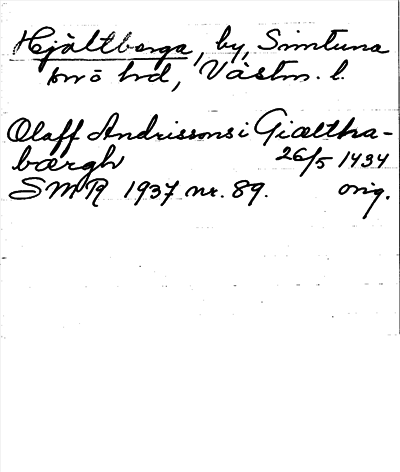 Hjältberga, by, Simtuna
hd, Västm. l.
Olaff Andrissons i Giæltha-
bærgh 26/5 1434
SMR 1937 nr. 89. orig.